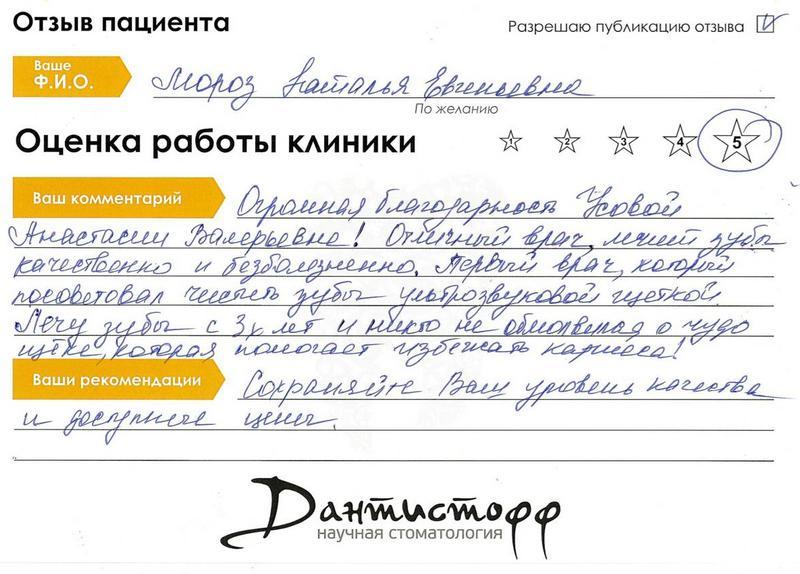 Отзыв пациента
Разрешаю публикацию отзыва
Ваше
Ф.И.О.
Мороз Наталья Евгеньевна
По желанию
Оценка работы клиники
1 2 3 4 5
Ваш комментарий
Огромная благодарность Усовой
Анастасии Валерьевне! Отличный врач, лечит зубы
качественно и безболезненно. Первый врач, который
посоветовал чистить зубы ультрозвуковой щеткой.
Лечу зубы с 3х лет и никто не обмолвился о чудо
щётке, которая помогает избежать кариеса!
Ваши рекомендации
Сохраняйте Ваш уровень качества
и доступные цены.
Дантистофф
научная стоматология